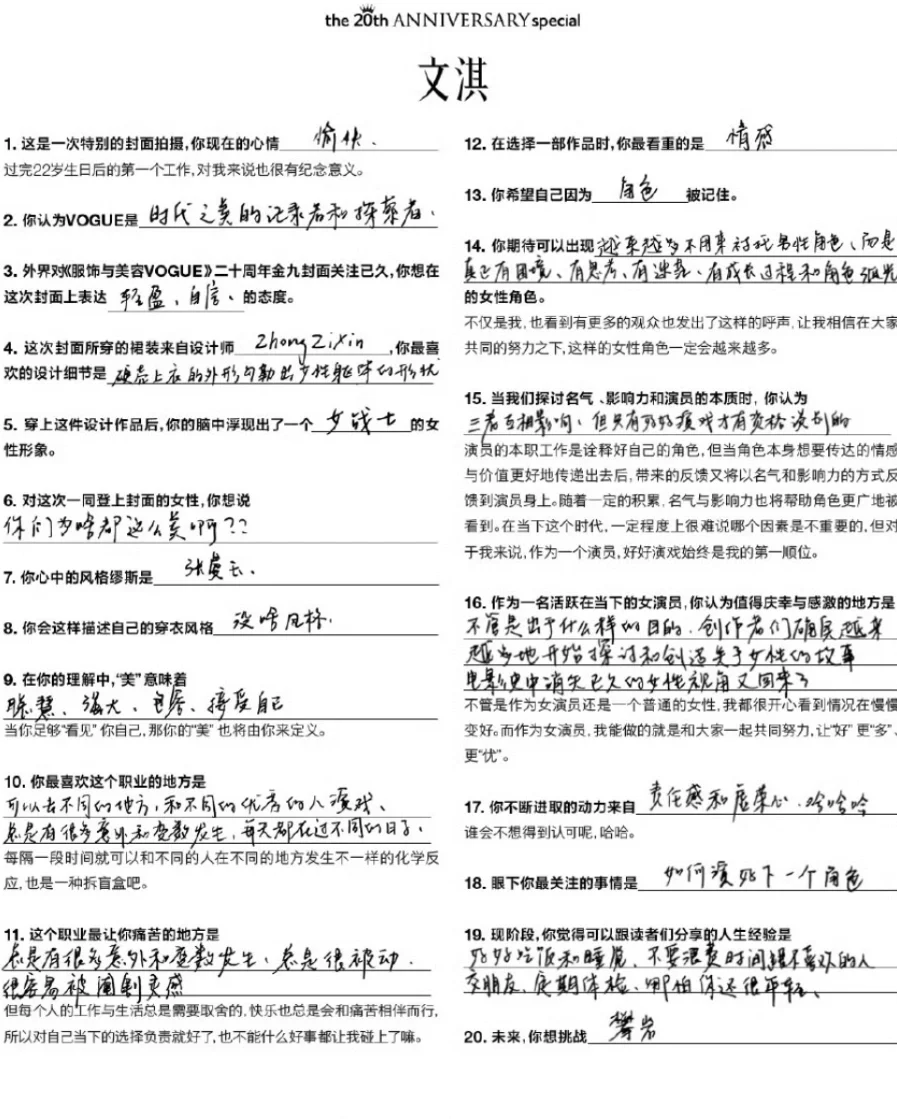 the 20th ANNIVERSARY special
文淇
1. 这是一次特别的封面拍摄,你现在的心情 愉快.
过完22岁生日后的第一个工作,对我来说也很有纪念意义。
2. 你认为VOGUE是 时代之美的记录者和探索者.
3. 外界对《服饰与美容VOGUE》二十周年金九封面关注已久,你想在
这次封面上表达 轻盈、自信、 的态度。
4. 这次封面所穿的裙装来自设计师 Zhong Zixin ,你最喜
欢的设计细节是 硬壳上衣的外形勾勒出女性躯体的形状
5. 穿上这件设计作品后,你的脑中浮现出了一个 女战士 的女
性形象。
6. 对这次一同登上封面的女性,你想说
你们为啥都这么美啊??
7. 你心中的风格缪斯是 张曼玉.
8. 你会这样描述自己的穿衣风格 没啥风格.
9. 在你的理解中,“美”意味着
聪慧、强大、包容、接受自己
当你足够“看见”你自己,那你的“美”也将由你来定义。
10. 你最喜欢这个职业的地方是
可以去不同的地方,和不同的优秀的人演戏、
总是有很多意外和变数发生,每天都在过不同的日子.
每隔一段时间就可以和不同的人在不同的地方发生不一样的化学反
应,也是一种拆盲盒吧。
11. 这个职业最让你痛苦的地方是
总是有很多意外和变数发生、总是很被动.
很容易被阉割灵感
但每个人的工作与生活总是需要取舍的,快乐也总是会和痛苦相伴而行,
所以对自己当下的选择负责就好了,也不能什么好事都让我碰上了嘛。
12. 在选择一部作品时,你最看重的是 情感
13. 你希望自己因为 角色 被记住。
14. 你期待可以出现 越来越多不用来衬托男性角色、而是
真正有困境、有思考、有迷茫、有成长过程和角色弧光
的女性角色。
不仅是我,也看到有更多的观众也发出了这样的呼声,让我相信在大家
共同的努力之下,这样的女性角色一定会越来越多。
15. 当我们探讨名气、影响力和演员的本质时,你认为
三者互相影响、但只有好好演戏才有资格谈别的
演员的本职工作是诠释好自己的角色,但当角色本身想要传达的情感
与价值更好地传递出去后,带来的反馈又将以名气和影响力的方式反
馈到演员身上。随着一定的积累,名气与影响力也将帮助角色更广地被
看到。在当下这个时代,一定程度上很难说哪个因素是不重要的,但对
于我来说,作为一个演员,好好演戏始终是我的第一顺位。
16. 作为一名活跃在当下的女演员,你认为值得庆幸与感激的地方是
不管是出于什么样的目的、创作者们确实越来
越多地开始探讨和创造关于女性的故事
电影史中消失已久的女性视角又回来了
不管是作为女演员还是一个普通的女性,我都很开心看到情况在慢慢
变好。而作为女演员,我能做的就是和大家一起共同努力,让“好”更“多”、
更“优”。
17. 你不断进取的动力来自 责任感和虚荣心.哈哈哈
谁会不想得到认可呢,哈哈。
18. 眼下你最关注的事情是 如何演好下一个角色
19. 现阶段,你觉得可以跟读者们分享的人生经验是
好好吃饭和睡觉、不要浪费时间跟不喜欢的人
交朋友、定期体检、哪怕你还很年轻、
20. 未来,你想挑战 攀岩